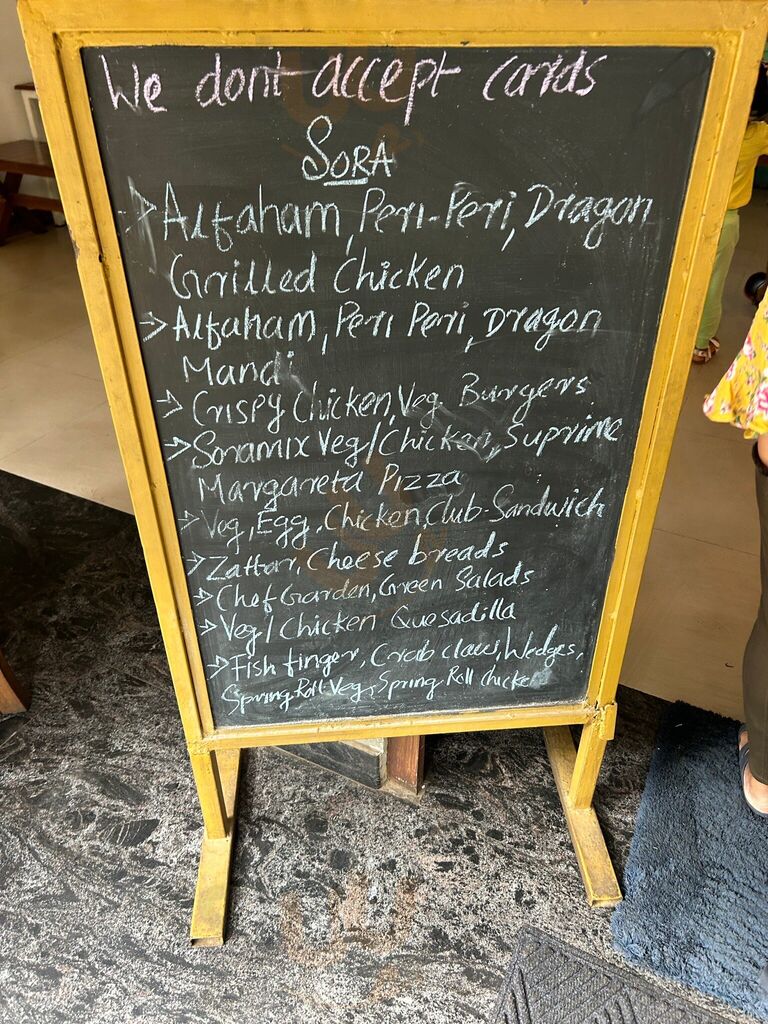 We dont accept cards
SORA
> Alfaham, Peri-Peri, Dragon
Grilled Chicken
> Alfaham, Peri Peri, Dragon
Mandi
> Crispy Chicken, Veg Burgers
> Soramix Veg/Chicken, Suprime
Margareta Pizza
> Veg, Egg, Chicken, Club-Sandwich
> Zattar, Cheese breads
> Chef Garden, Green Salads
> Veg/Chicken Quesadilla
> Fish finger, Crab claw, Wedges,
Spring Roll Veg, Spring Roll chicken